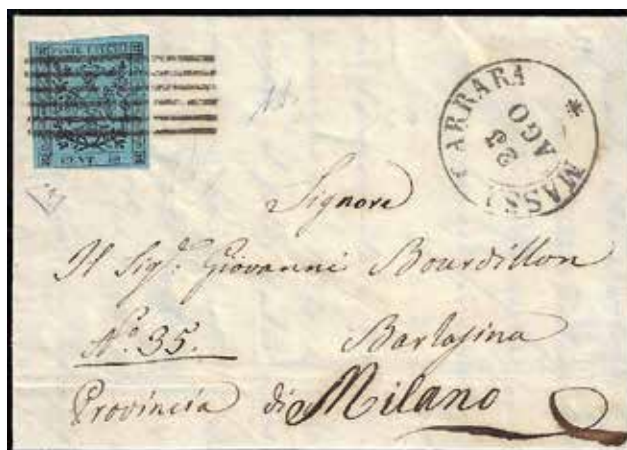 POSTE ESTENSI
CENT.
MASSA CARRARA
23
AGO
Signore
Il Sigr. Giovanni Bourdillon
No. 35. Barlasina
Provincia di Milano